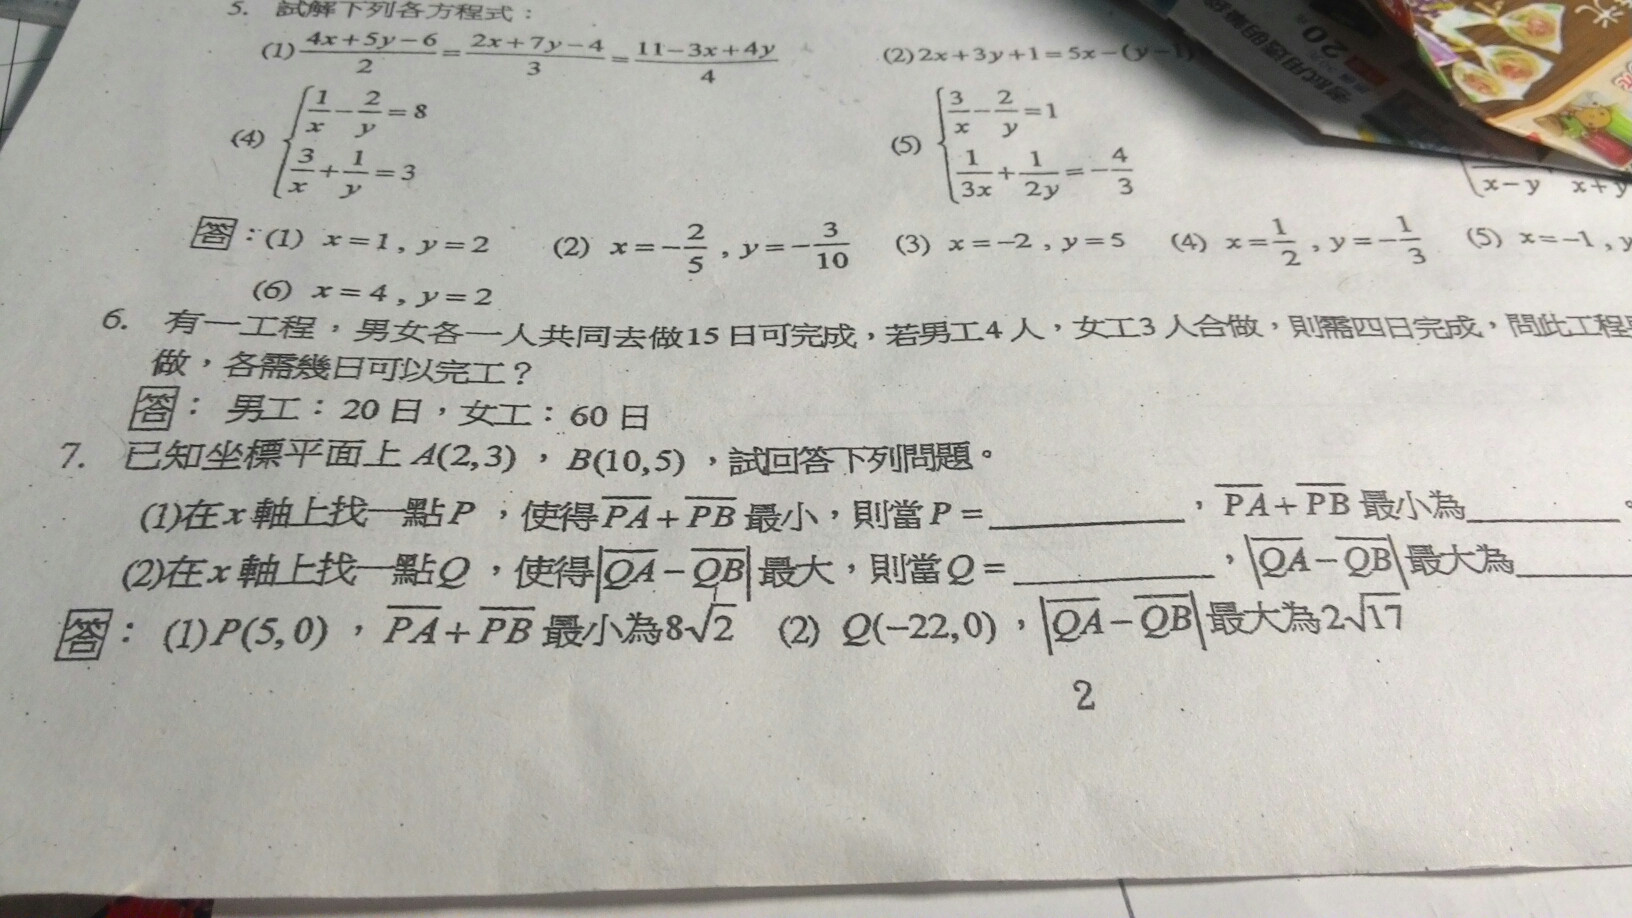 5. 試解下列各方程式：
(1) \frac{4x+5y-6}{2}=\frac{2x+7y-4}{3}=\frac{11-3x+4y}{4} (2) 2x+3y+1=5x-(y-1)
(4) \begin{cases}\frac{1}{x}-\frac{2}{y}=8\\\frac{3}{x}+\frac{1}{y}=3\end{cases} (5) \begin{cases}\frac{3}{x}-\frac{2}{y}=1\\\frac{1}{3x}+\frac{1}{2y}=-\frac{4}{3}\end{cases} x-y x+y
答：(1) x=1，y=2 (2) x=-\frac{2}{5}，y=-\frac{3}{10} (3) x=-2，y=5 (4) x=\frac{1}{2}，y=-\frac{1}{3} (5) x=-1，y
(6) x=4，y=2
6. 有一工程，男女各一人共同去做15日可完成，若男工4人，女工3人合做，則需四日完成，問此工程
做，各需幾日可以完工？
答：男工：20日，女工：60日
7. 已知坐標平面上A(2,3)，B(10,5)，試回答下列問題。
(1)在x軸上找一點P，使得\overline{PA}+\overline{PB}最小，則當P=________，\overline{PA}+\overline{PB}最小為______。
(2)在x軸上找一點Q，使得|\overline{QA}-\overline{QB}|最大，則當Q=________，|\overline{QA}-\overline{QB}|最大為______
答：(1)P(5,0)，\overline{PA}+\overline{PB}最小為8√2 (2) Q(-22,0)，|\overline{QA}-\overline{QB}|最大為2√17
2
20